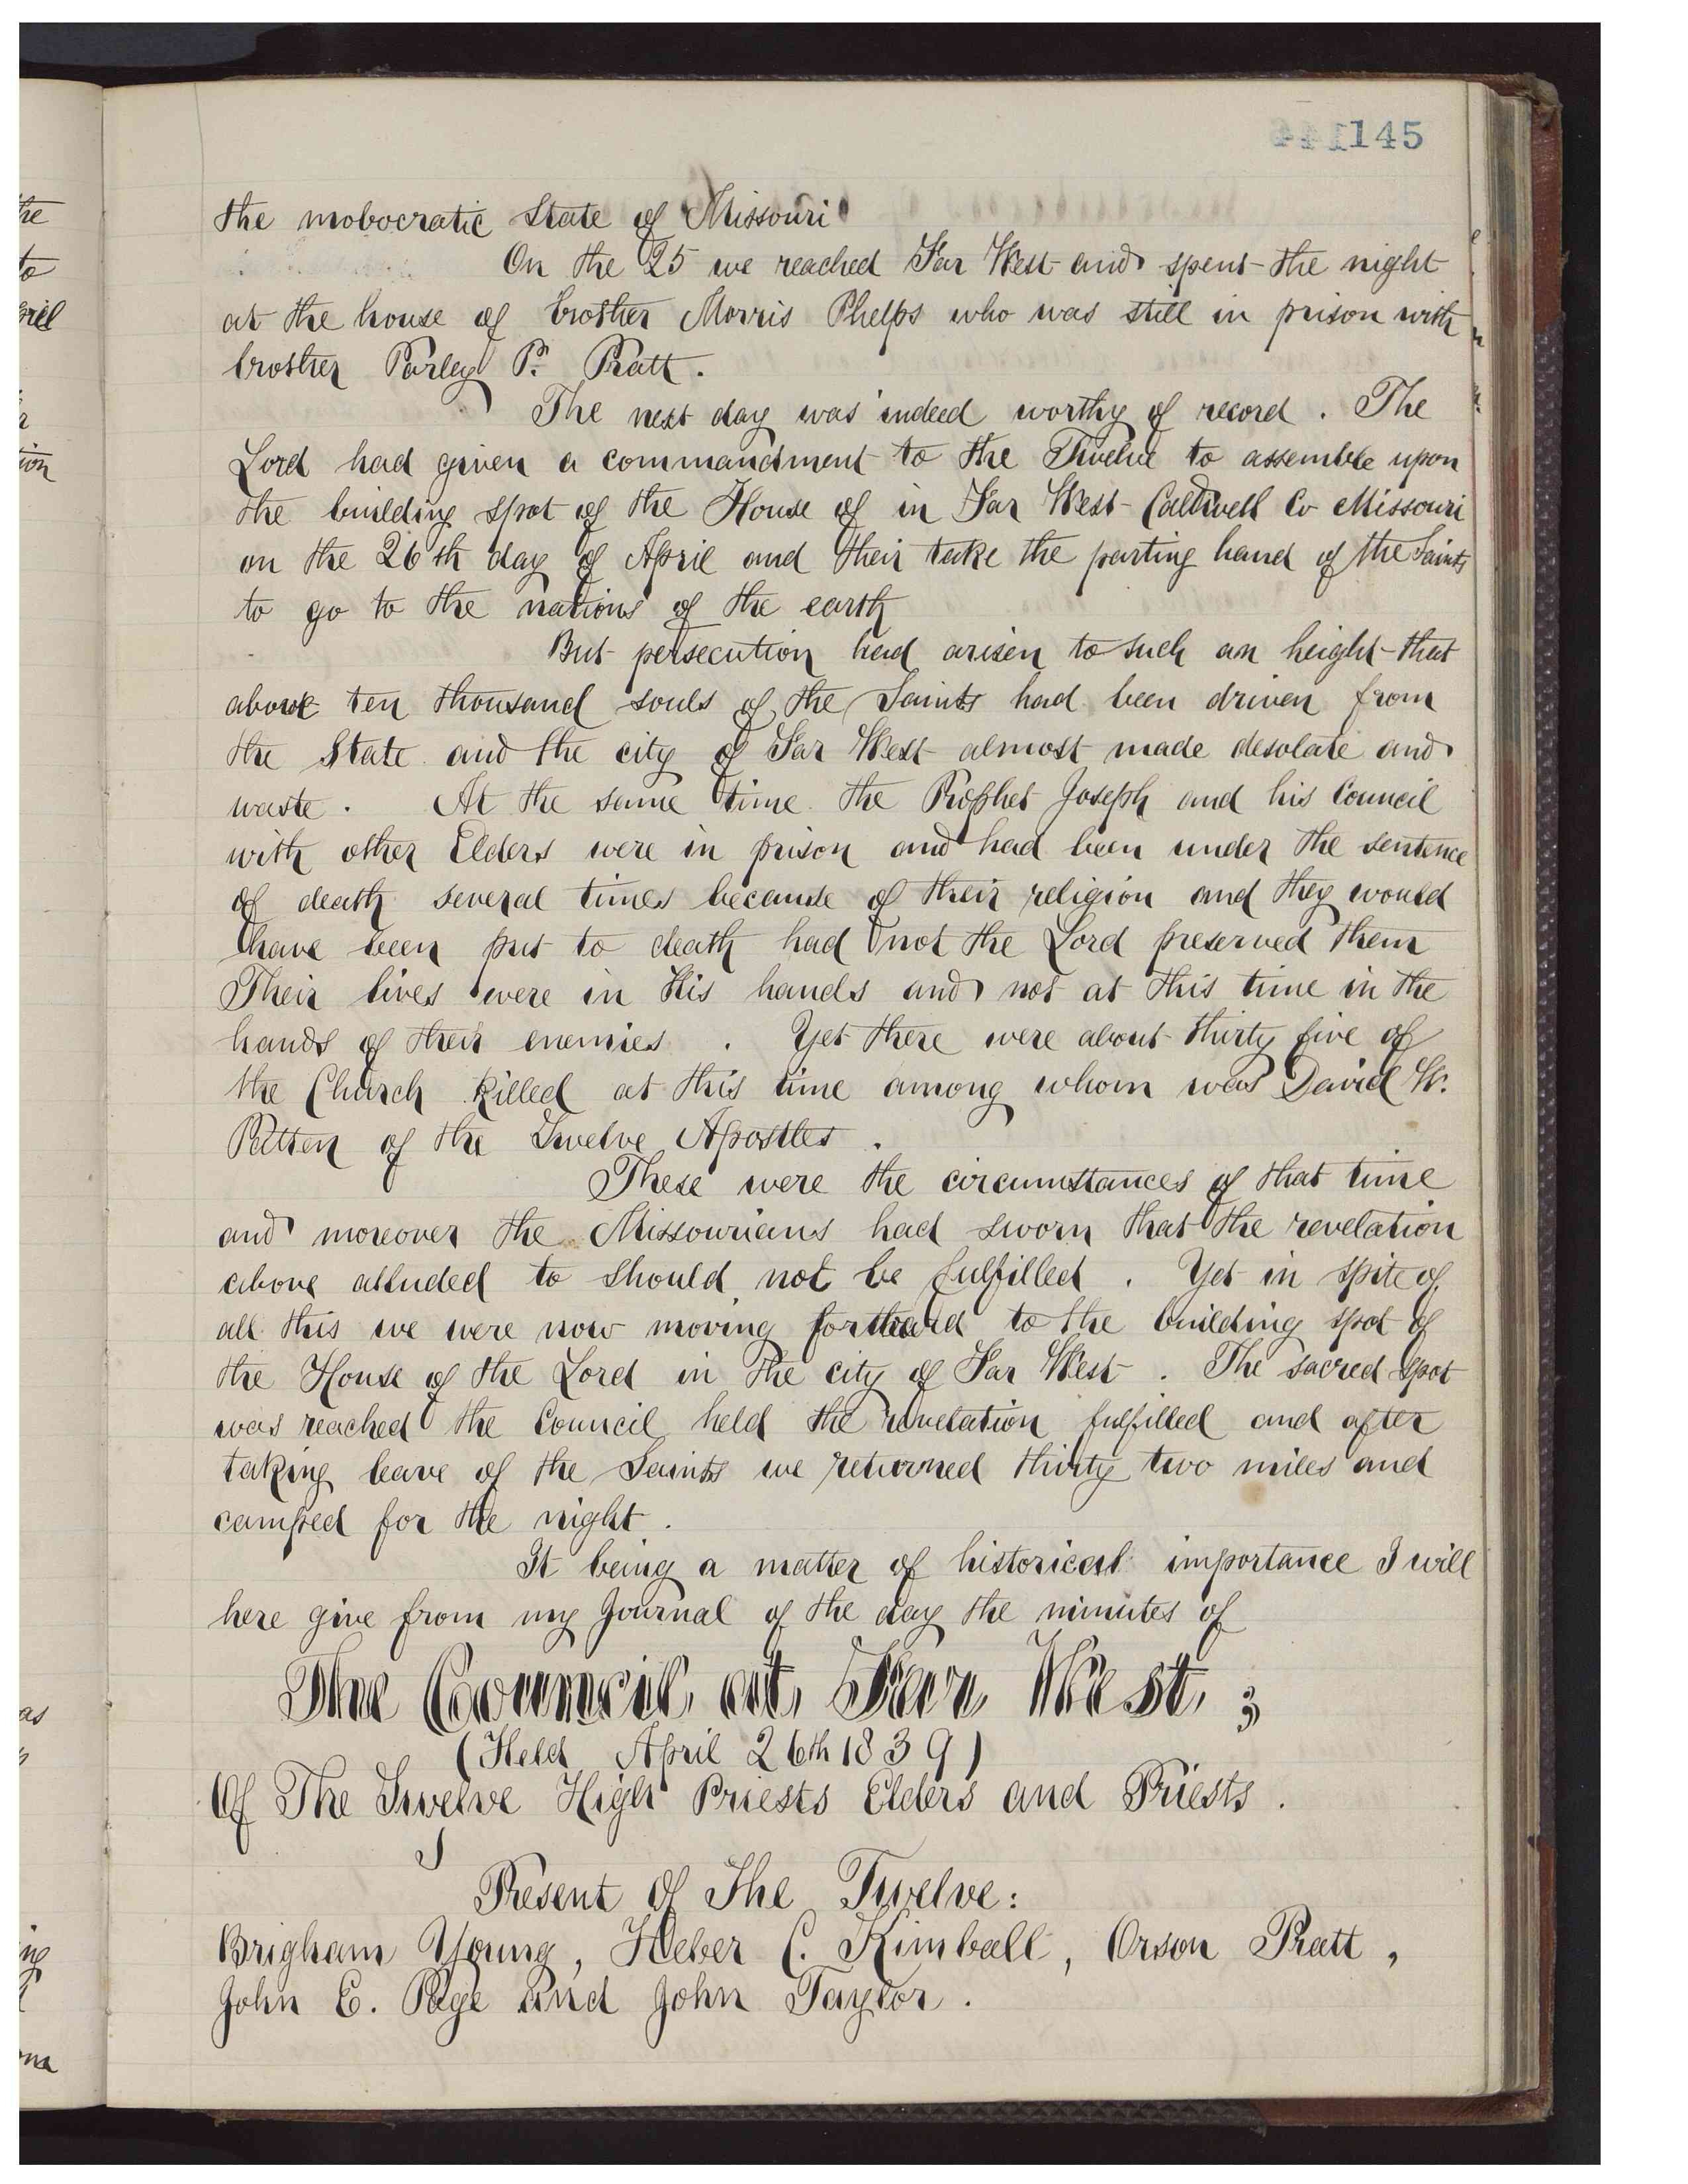 145
the mobocratic State of Missouri
On the 25 we reached Far West and spent the night
at the house of brother Morris Phelps who was still in prison with
brother Parley P. Pratt.
The next day was indeed worthy of record. The
Lord had given a commandment to the Twelve to assemble upon
the building spot of the House of in Far West Caldwell Co Missouri
on the 26th day of April and their take the parting hand of the Saints
to go to the nations of the earth
But persecution had arisen to such an height that
about ten thousand souls of the Saints had been driven from
the State and the city of Far West almost made desolate and
waste. At the same time the Prophet Joseph and his Council
with other Elders were in prison and had been under the sentence
of death several times because of their religion and they would
have been put to death had not the Lord preserved them
Their lives were in His hands and not at this time in the
hands of their enemies. Yet there were about thirty five of
the Church killed at this time among whom was David W.
Patten of the Twelve Apostles.
These were the circumstances of that time
and moreover the Missourians had sworn that the revelation
above alluded to should not be fulfilled. Yet in spite of
all this we were now moving forward to the building spot of
the House of the Lord in the city of Far West. The sacred spot
was reached the Council held the revelation fulfilled and after
taking leave of the Saints we returned thirty two miles and
camped for the night.
It being a matter of historical importance I will
here give from my Journal of the day the minutes of
The Council at Far West;
(Held April 26th 1839)
Of The Twelve High Priests Elders and Priests.
Present of The Twelve:
Brigham Young, Heber C. Kimball, Orson Pratt,
John E. Page and John Taylor.